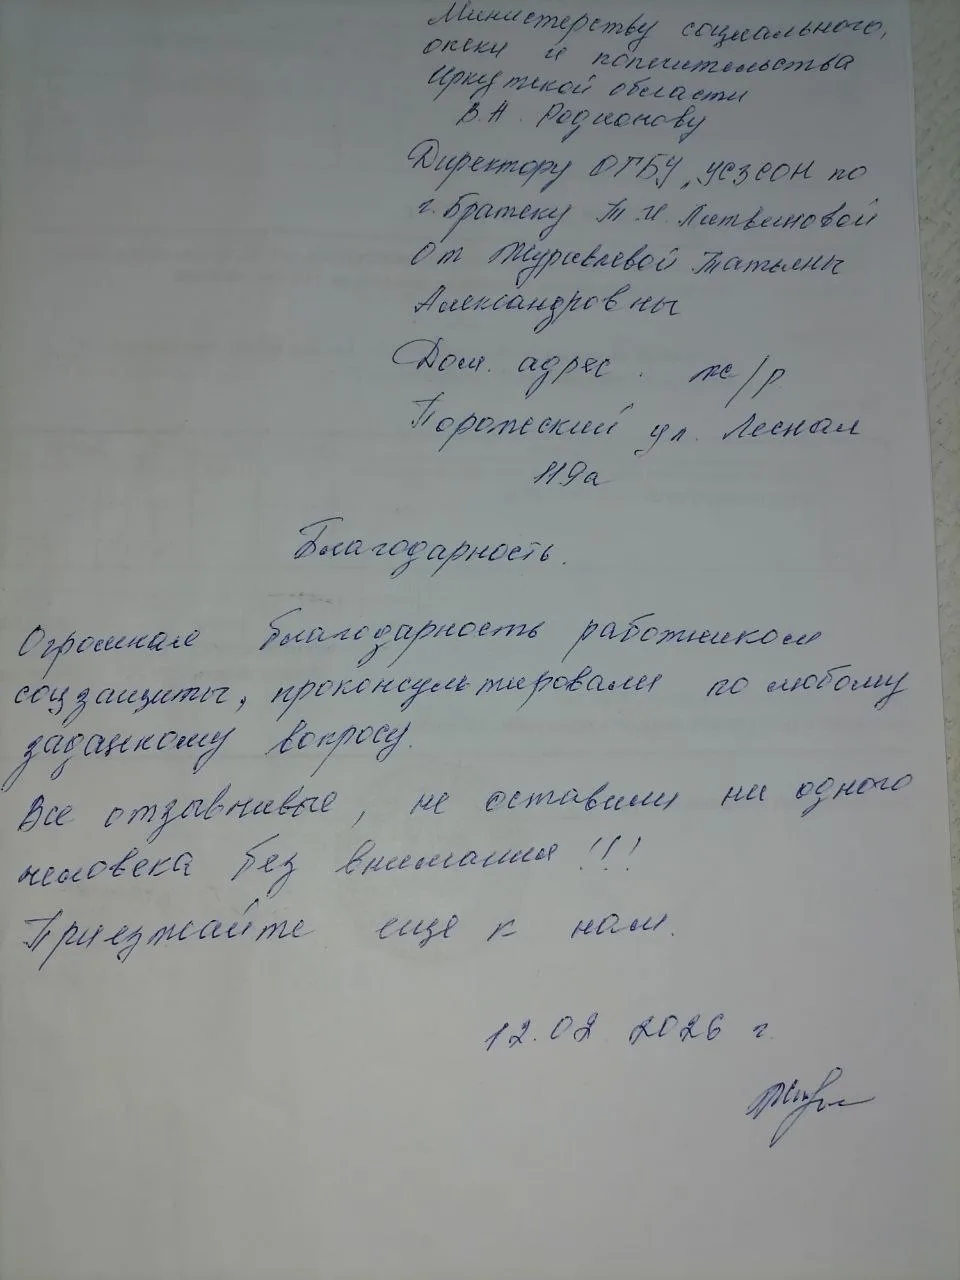 Министерству социального,
опеки и попечительства
Иркутской области
В.А. Родионову
Директору ОГБУ "УСЗСОН по
г. Братску Т.И. Литвиновой
От Журавлевой Татьяны
Александровны
Дом. адрес. ж/р
Порожский ул. Лесная
119а
Благодарность.
Огромная благодарность работником
соцзащиты, проконсультировали по любому
заданному вопросу.
Все отзывчивые, не оставили ни одного
человека без внимания!!!
Приезжайте еще к нам.
12.02.2026 г.